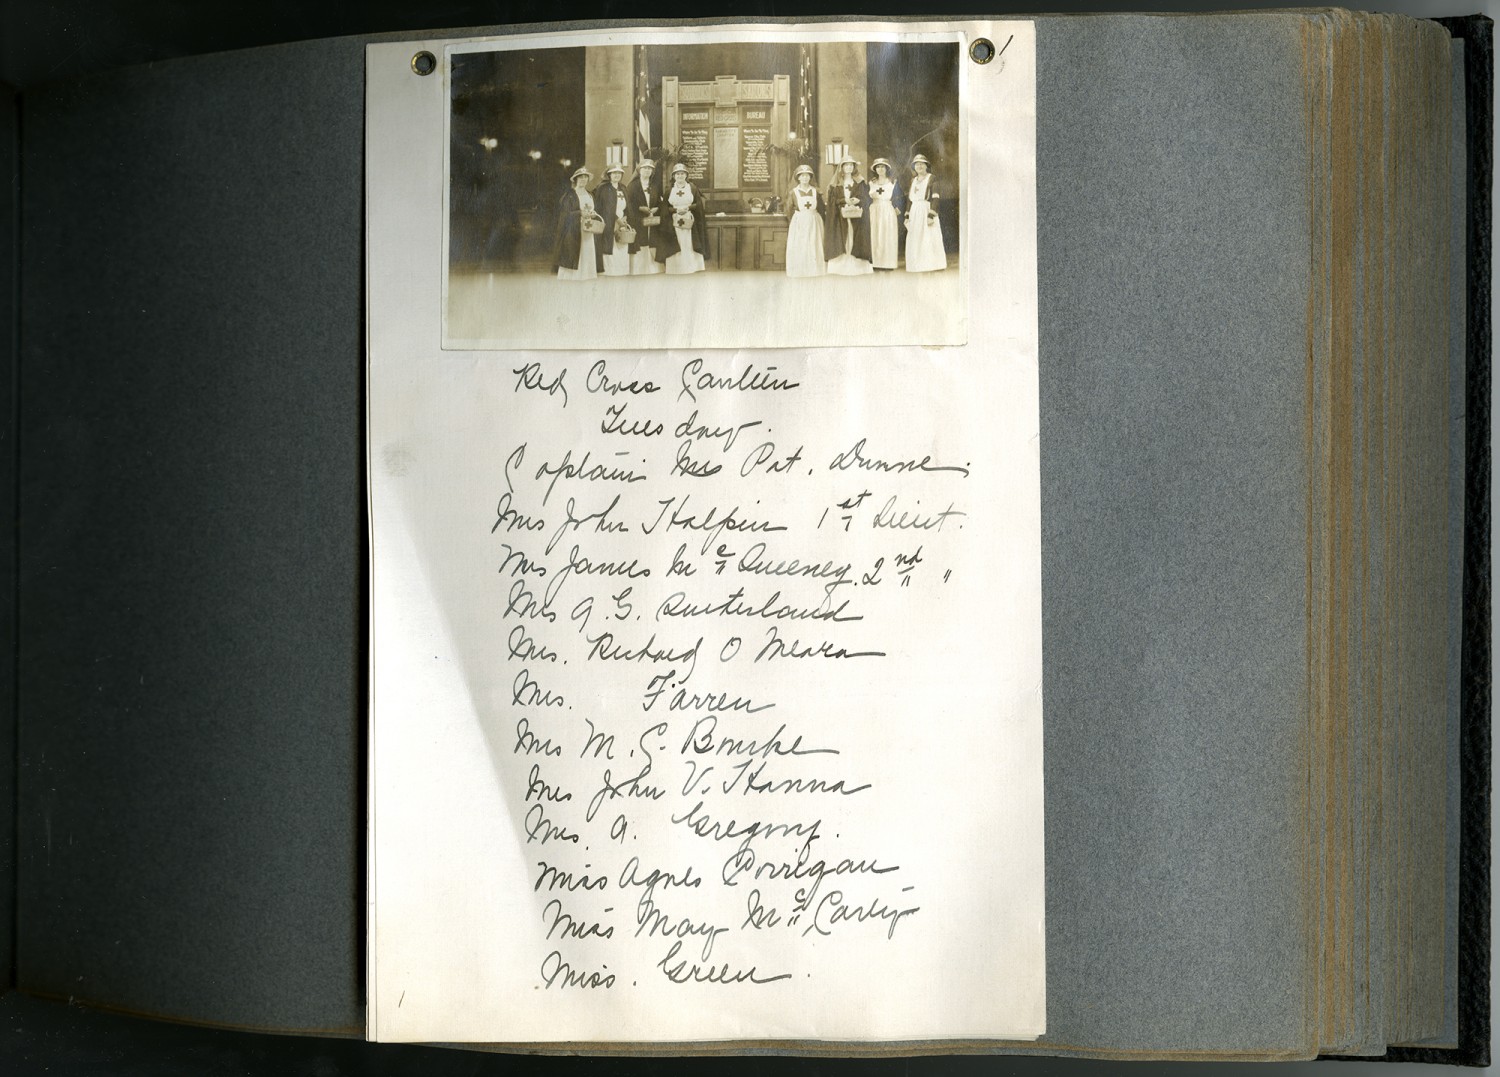 1
INFORMATION BUREAU
Red Cross Canteen
Tuesday.
Captain Mrs Pat. Dunne.
Mrs John Halpin 1st Lieut.
Mrs James Mc Queeney. 2nd "
Mrs A. G. Suterland
Mrs. Richard O Meara
Mrs. Farren
Mrs M. C. Bourke
Mrs John V. Hanna
Mrs. A. Gregory.
Miss Agnes Corrigan
Miss May Mc Carty
Miss. Green.
1